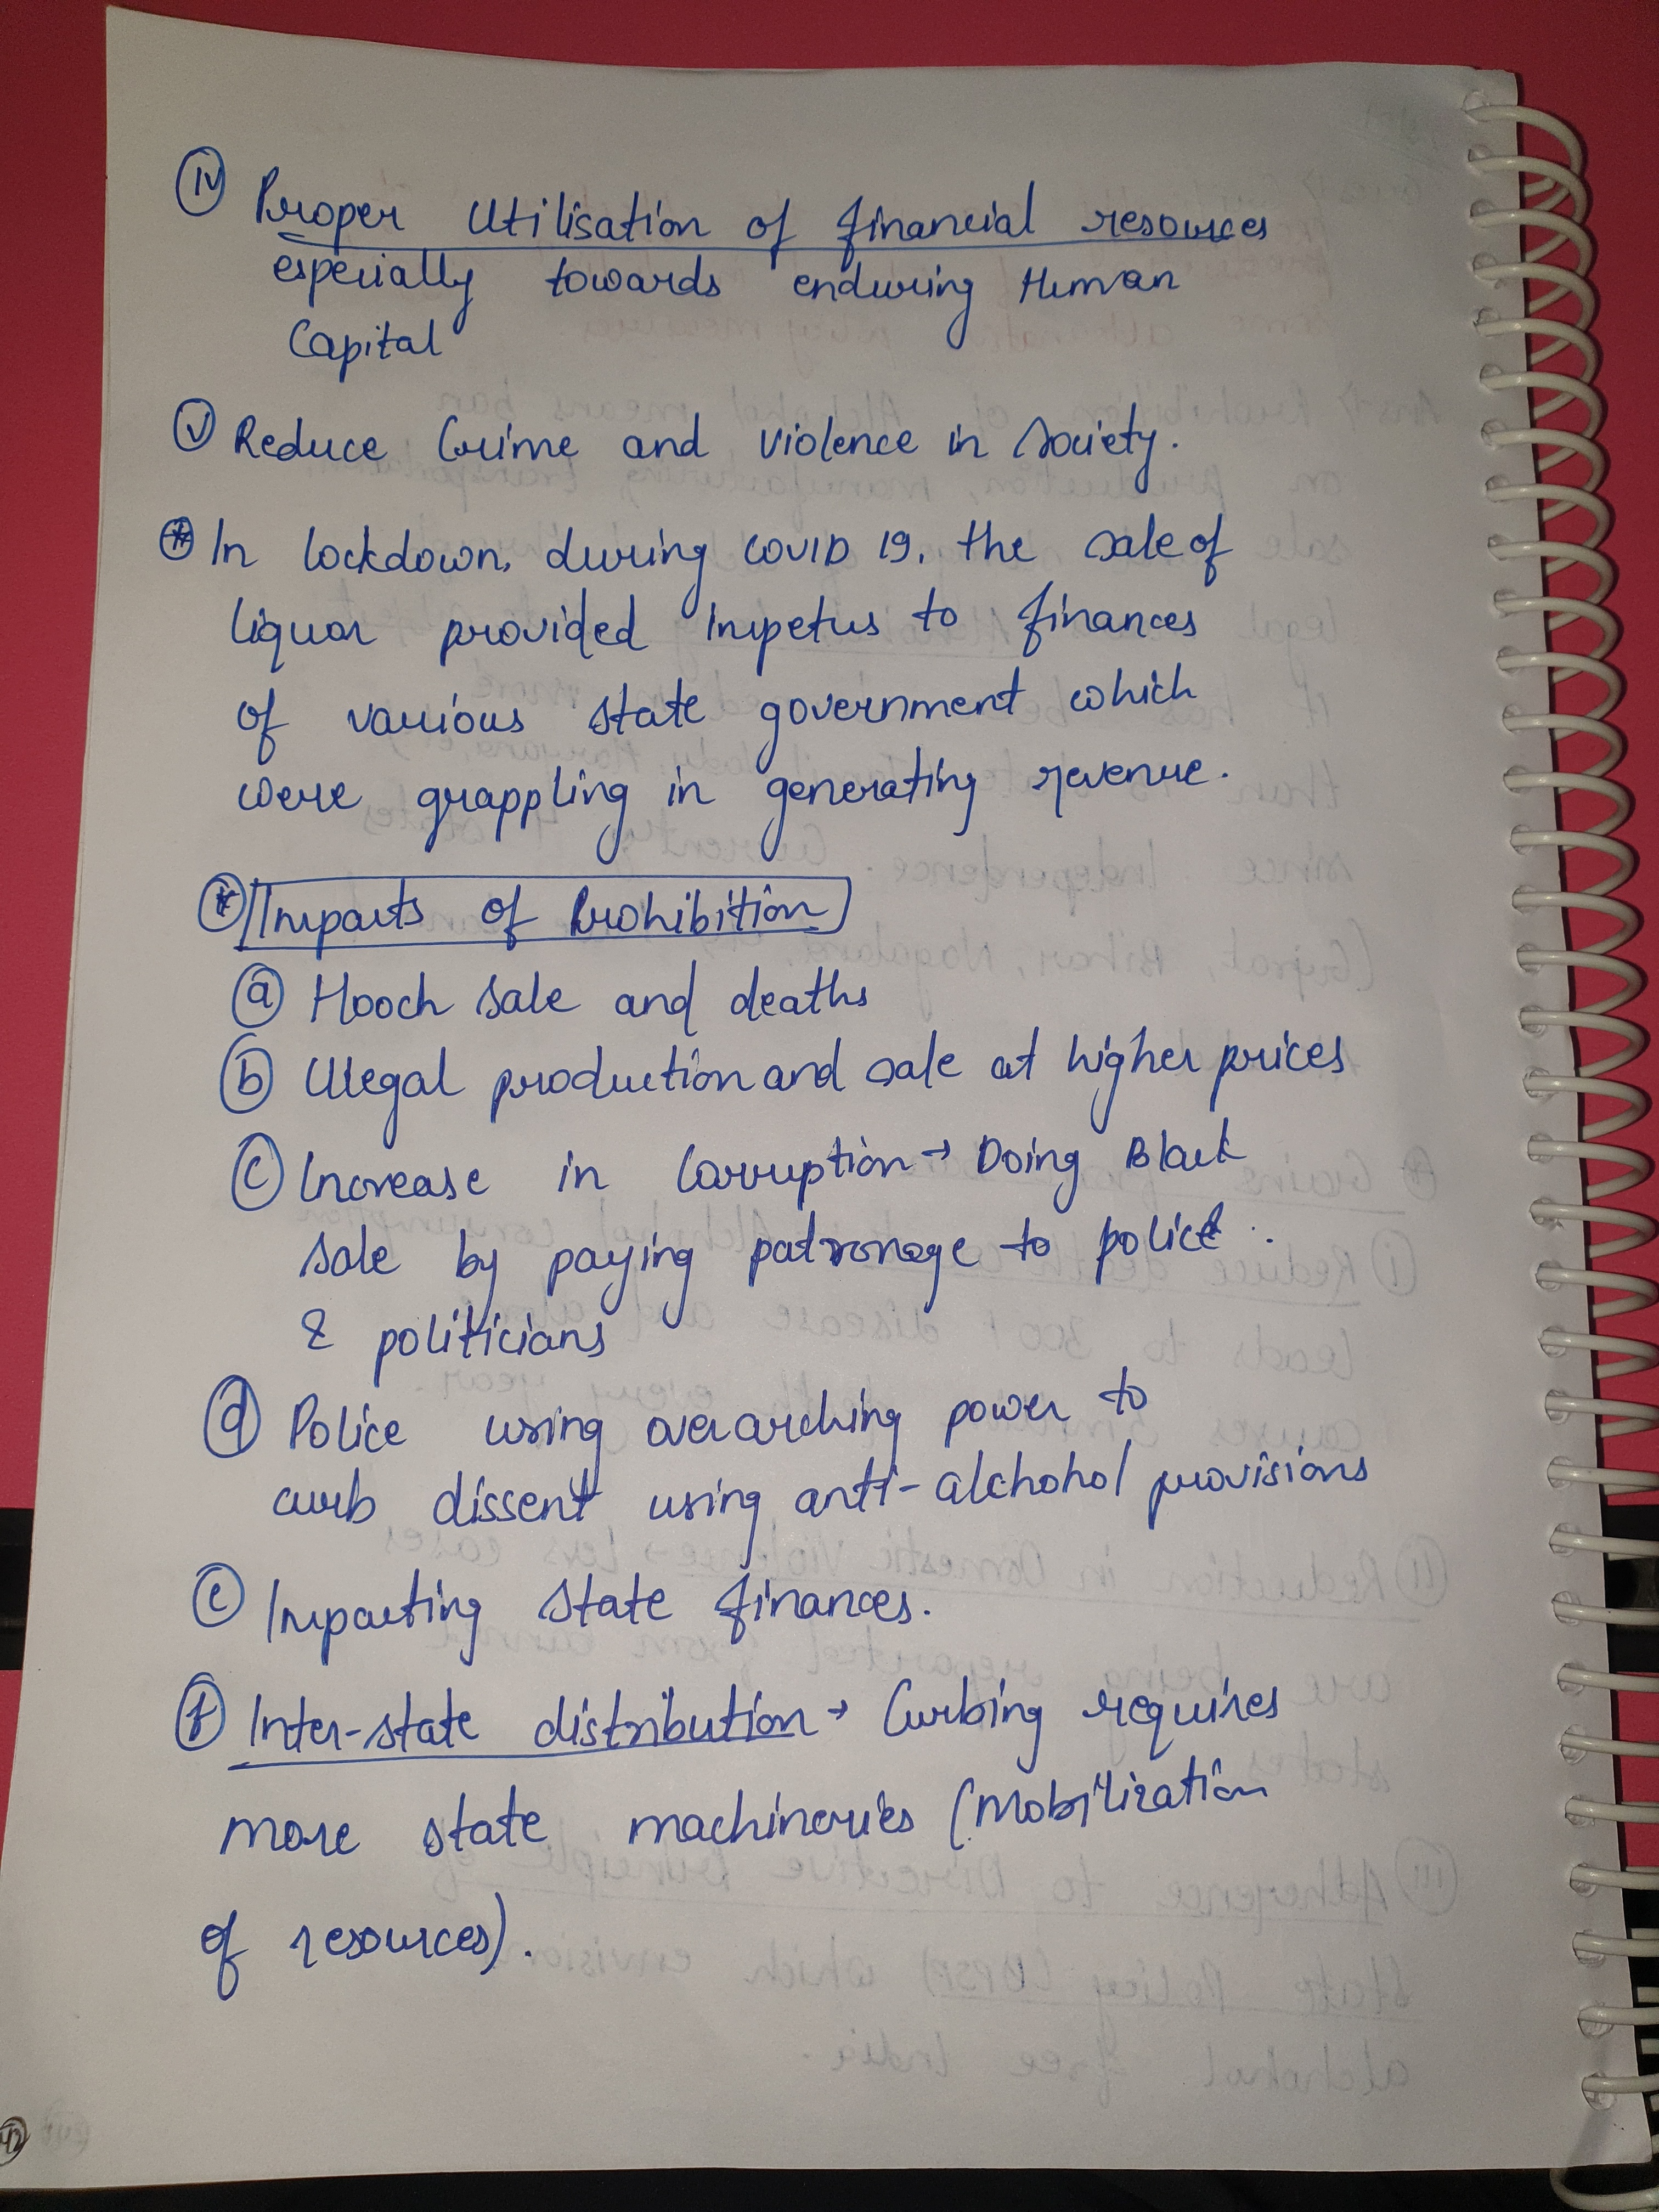 (iv) Proper Utilisation of financial resources
especially towards enduring Human
Capital
(v) Reduce Crime and violence in society.
(*) In lockdown, during COVID 19, the sale of
liquor provided impetus to finances
of various state government which
were grappling in generating revenue.
(*) Impacts of Prohibition
(a) Hooch sale and deaths
(b) Illegal production and sale at higher prices
(c) Increase in Corruption → Doing Black
sale by paying patronage to police
& politicians
(d) Police using overarching power to
curb dissent using anti-alchohol provisions
(e) Impacting state finances.
(f) Inter-state distribution → Curbing requires
more state machineries (Mobilization
of resources).